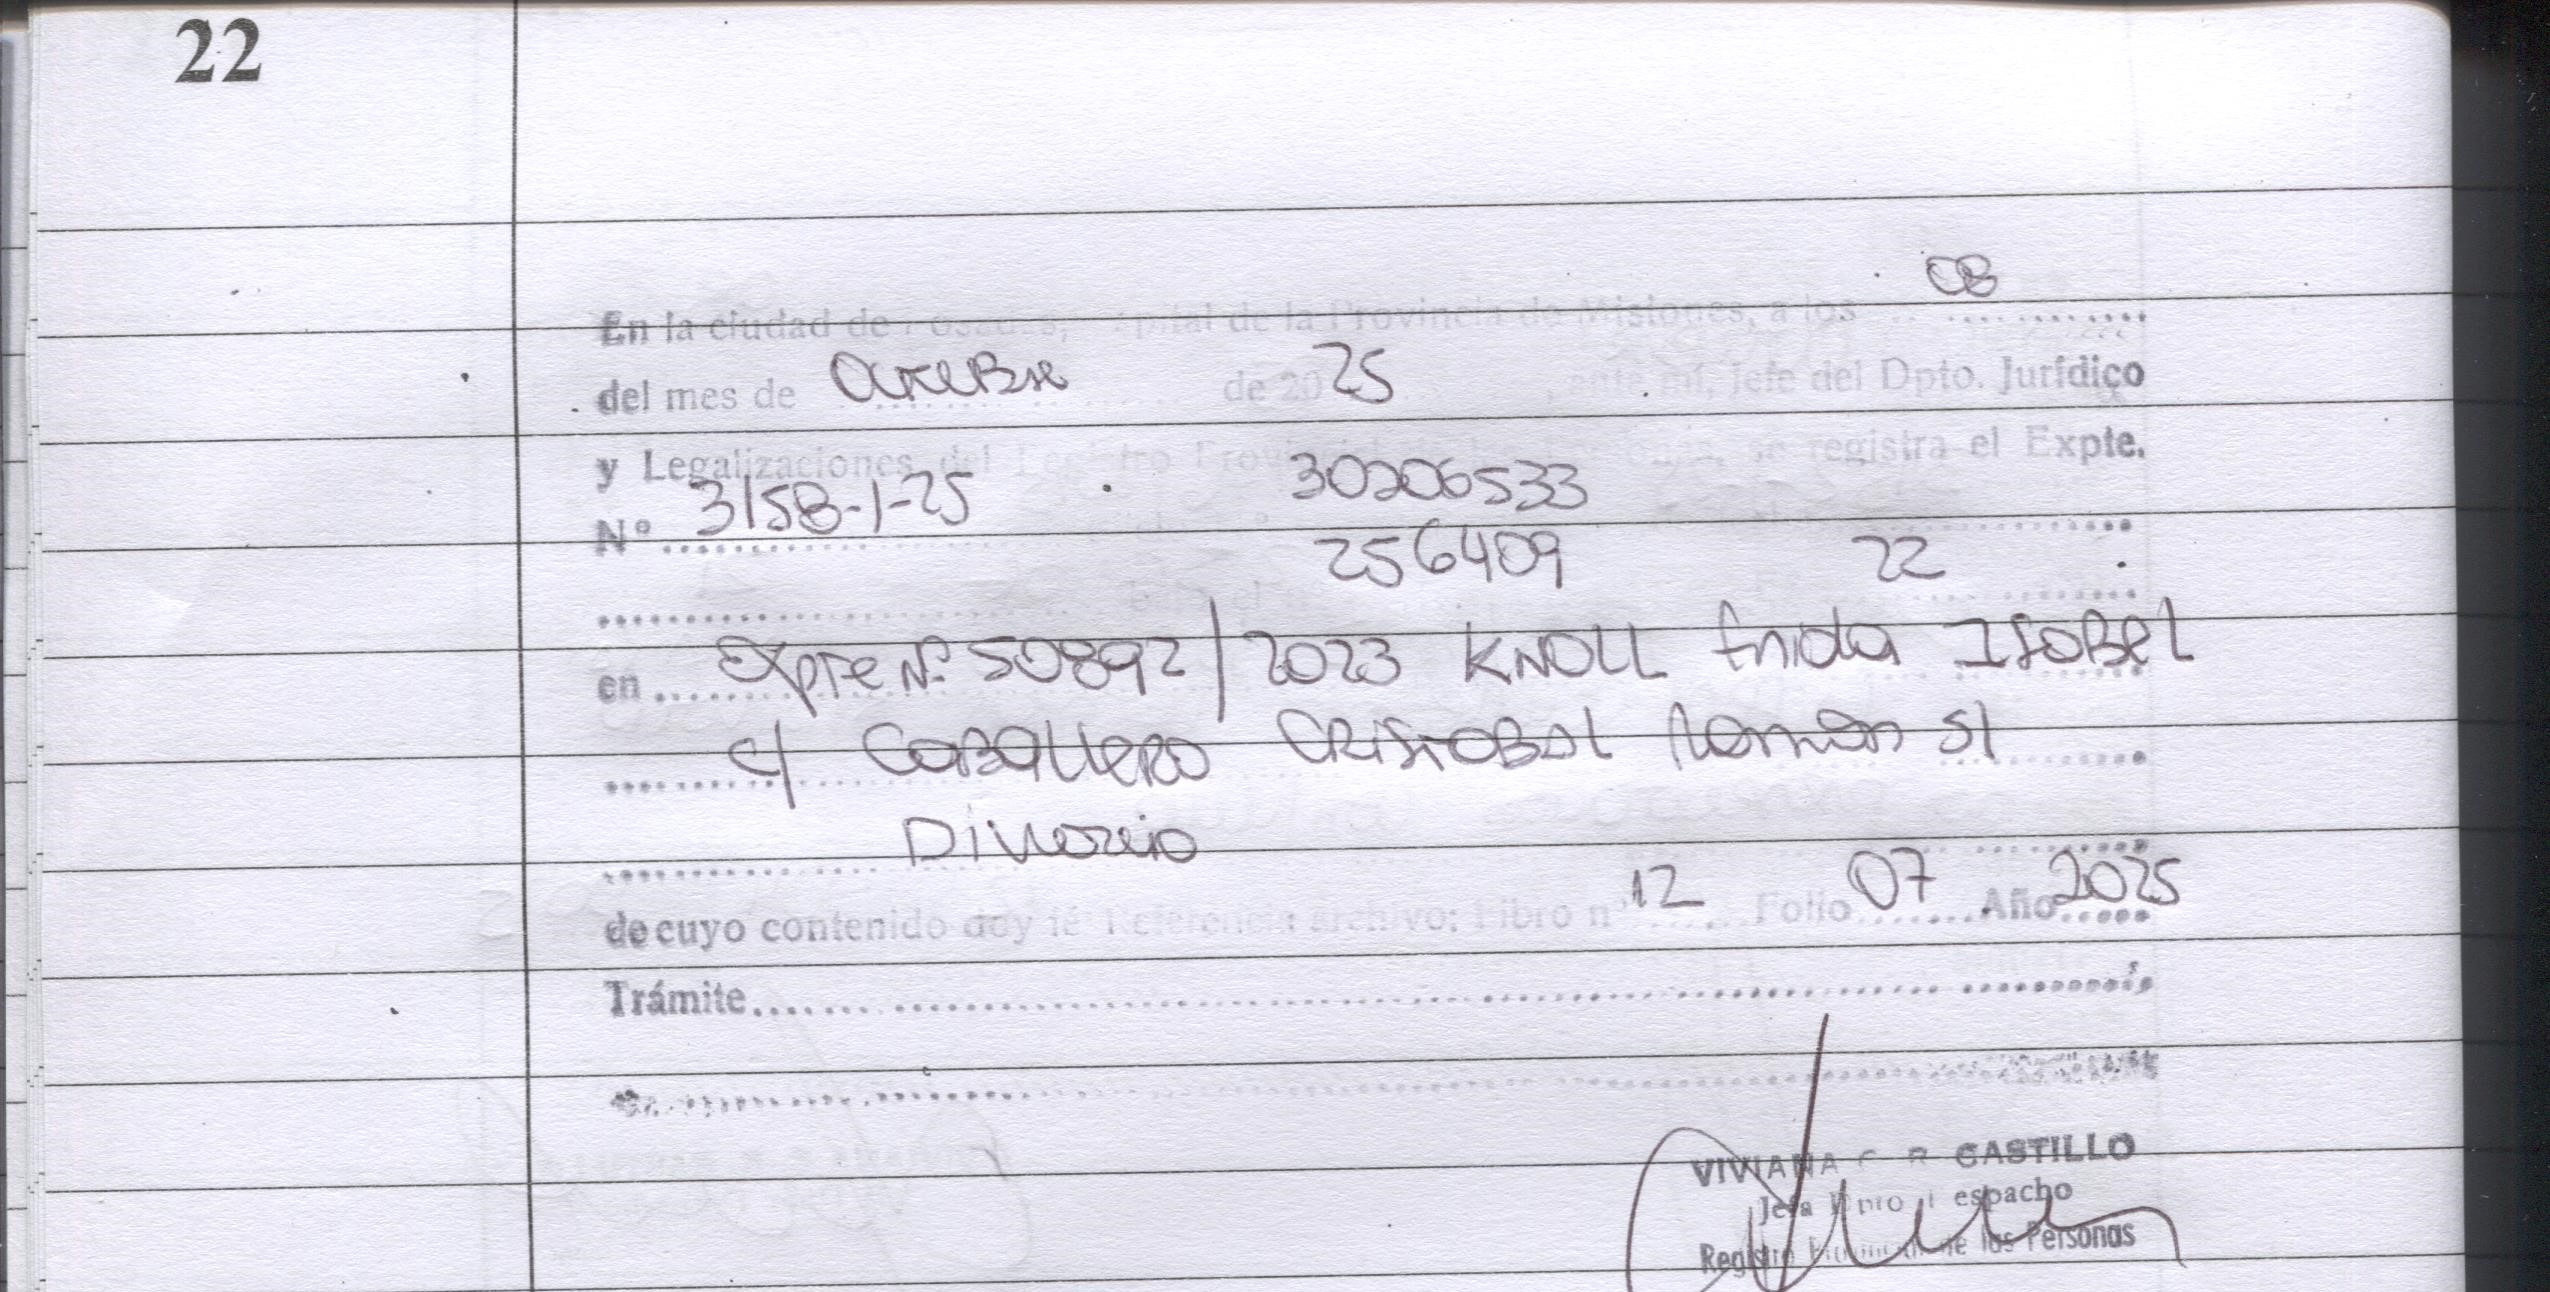 22
08
En la ciudad de Posadas, capital de la Provincia de Misiones, a los
del mes de Octubre de 20 25, ante mí, Jefe del Dpto. Jurídico
y Legalizaciones del Registro Provincial de las Personas, se registra el Expte.
Nº 3158-1-25 30206533
256409 22
en Expte Nº 50892/2023 KNOLL Frida Isabel
c/ Caballero Cristobal Ramón s/
Divorcio
de cuyo contenido doy fé Referencia archivo: Libro nº 12 Folio 07 Año 2025
Trámite
VIVIANA C. R. CASTILLO
Jefa Dpto Despacho
Registro Provincial de las Personas